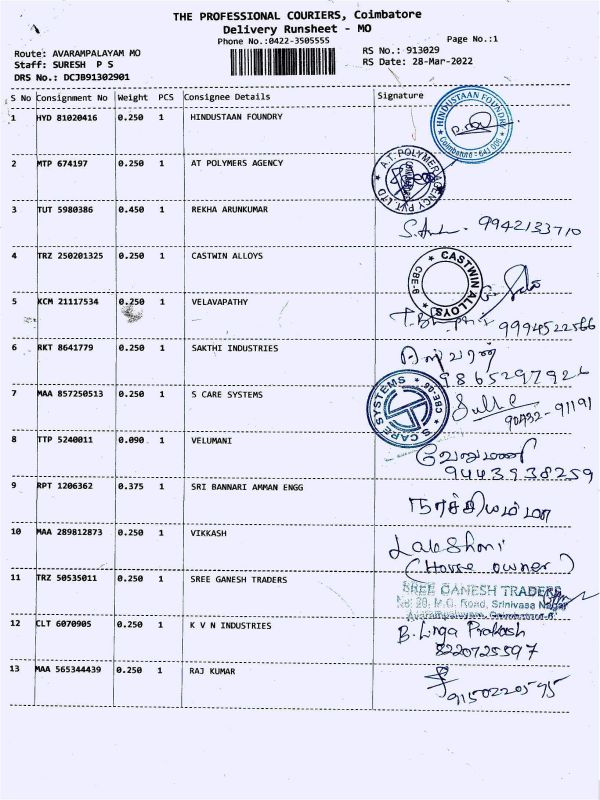 THE PROFESSIONAL COURIERS, Coimbatore
Delivery Runsheet - MO
Phone No.:0422-3505555
Page No.:1
Route: AVARAMPALAYAM MO
RS No.: 913029
Staff: SURESH P S
RS Date: 28-Mar-2022
DRS No.: DCJB91302901
S No Consignment No Weight PCS Consignee Details Signature
1 HYD 81020416 0.250 1 HINDUSTAAN FOUNDRY
HINDUSTAAN FOUNDRY
Coimbatore - 641 006
2 MTP 674197 0.250 1 AT POLYMERS AGENCY
A.T. POLYMER AGENCY PVT. LTD
3 TUT 5980386 0.450 1 REKHA ARUNKUMAR
9942133710
4 TRZ 250201325 0.250 1 CASTWIN ALLOYS
CASTWIN ALLOYS
CBE-6
5 KCM 21117534 0.250 1 VELAVAPATHY
9994522566
6 RKT 8641779 0.250 1 SAKTHI INDUSTRIES
9865297926
7 MAA 857250513 0.250 1 S CARE SYSTEMS
S CARE SYSTEMS
CBE-06
90432-91191
8 TTP 5240011 0.090 1 VELUMANI
வேலுமணி
9443938259
9 RPT 1206362 0.375 1 SRI BANNARI AMMAN ENGG
நாச்சியம்மா
10 MAA 289812873 0.250 1 VIKKASH
Lakshmi
(House owner)
11 TRZ 50535011 0.250 1 SREE GANESH TRADERS
SREE GANESH TRADERS
M.G. Road, Srinivasa Nagar
Avarampalayam, Coimbatore-6.
12 CLT 6070905 0.250 1 K V N INDUSTRIES
B. Linga Prakash
8220725597
13 MAA 565344439 0.250 1 RAJ KUMAR
9150220595